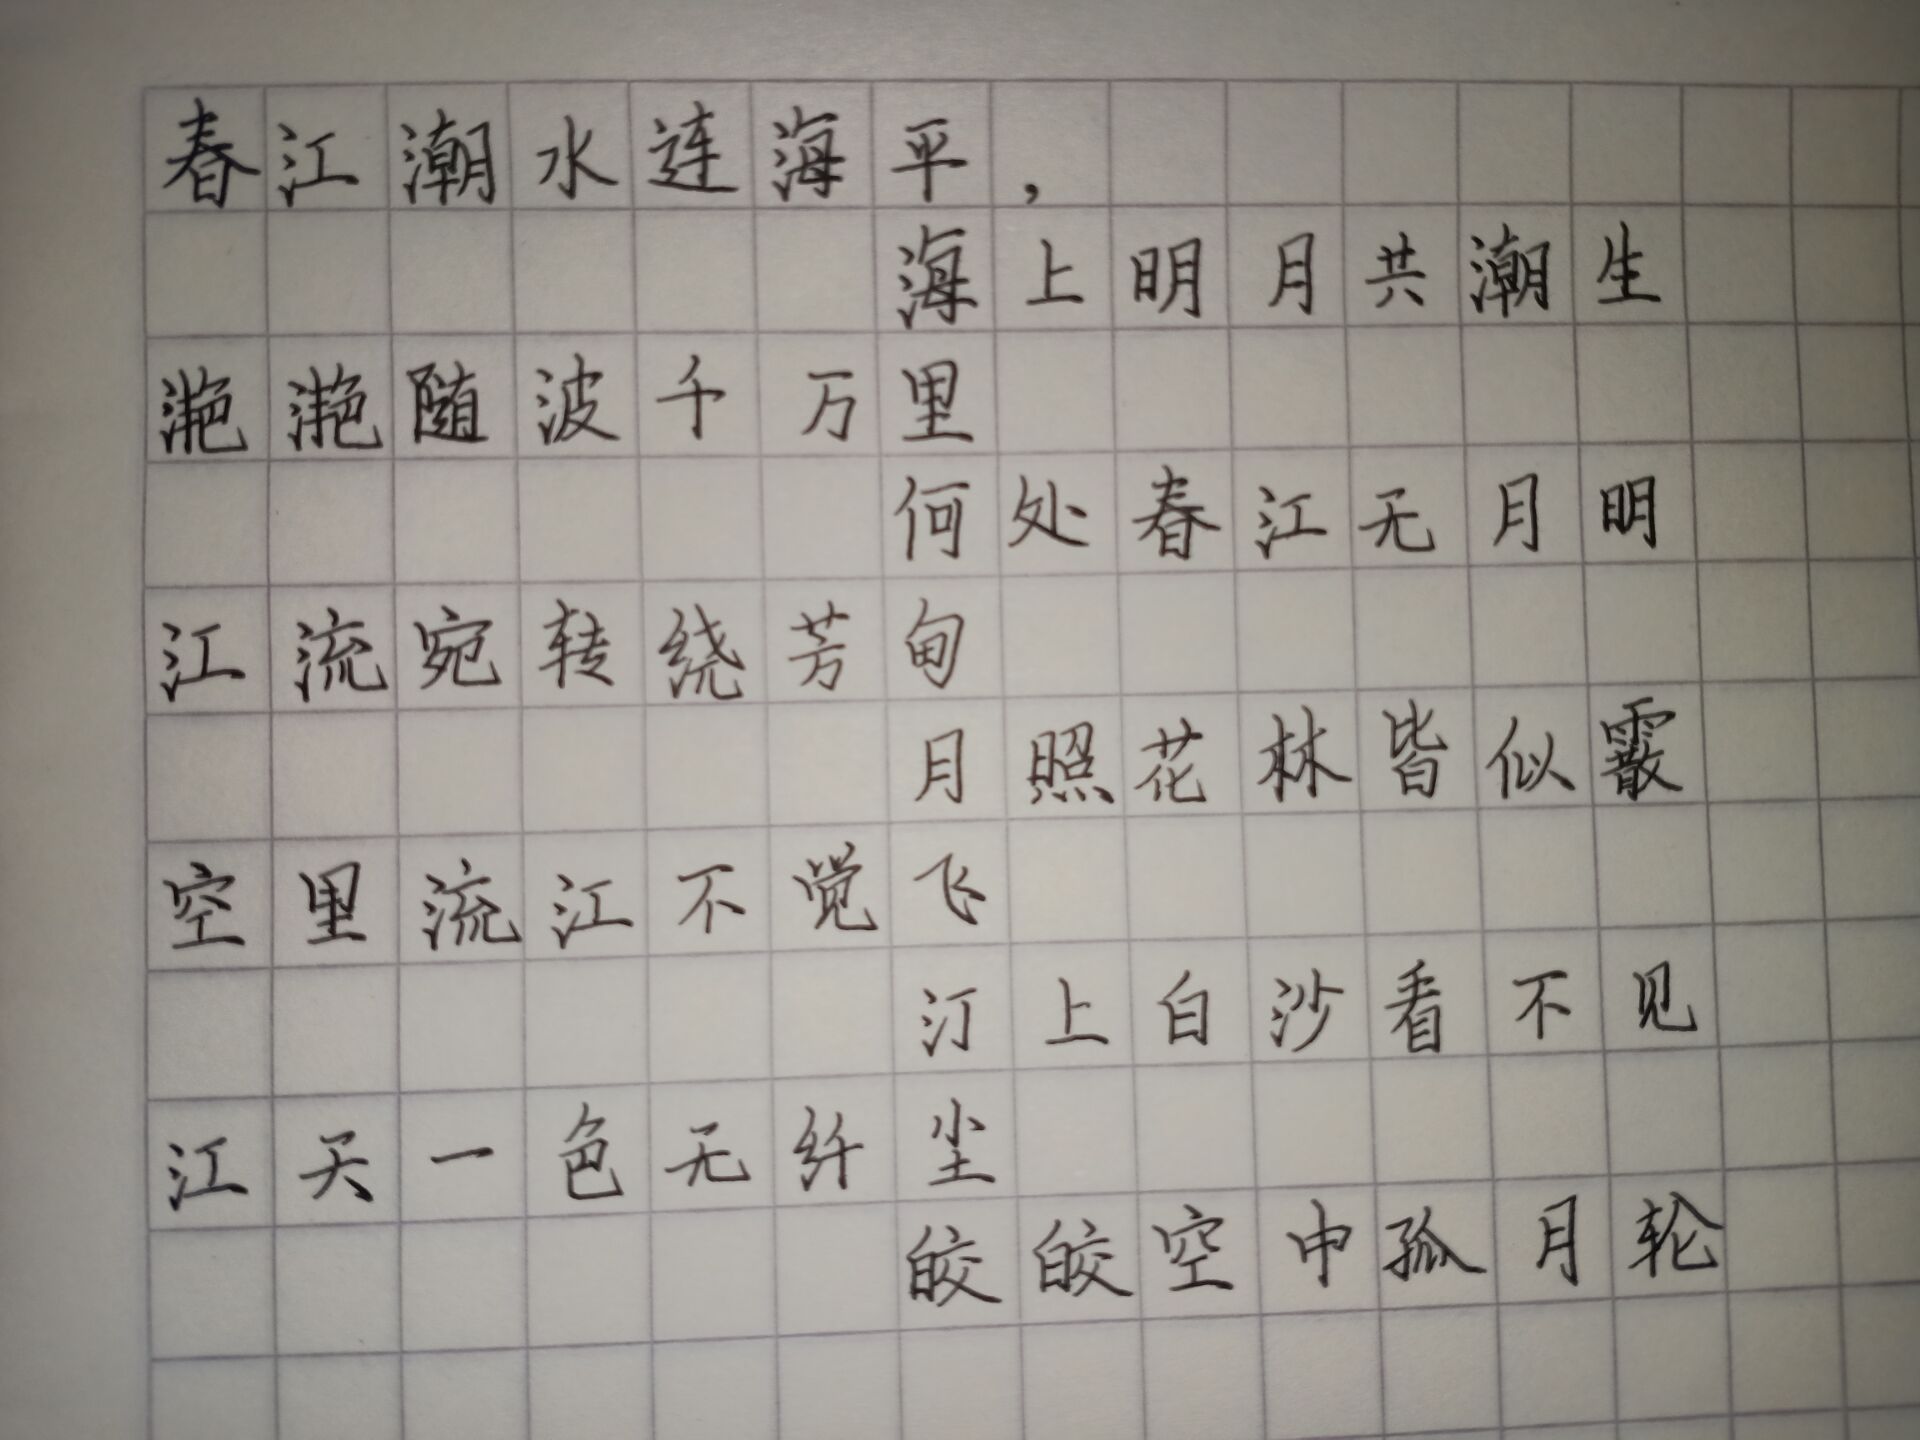 春江潮水连海平，
海上明月共潮生
滟滟随波千万里
何处春江无月明
江流宛转绕芳甸
月照花林皆似霰
空里流江不觉飞
汀上白沙看不见
江天一色无纤尘
皎皎空中孤月轮